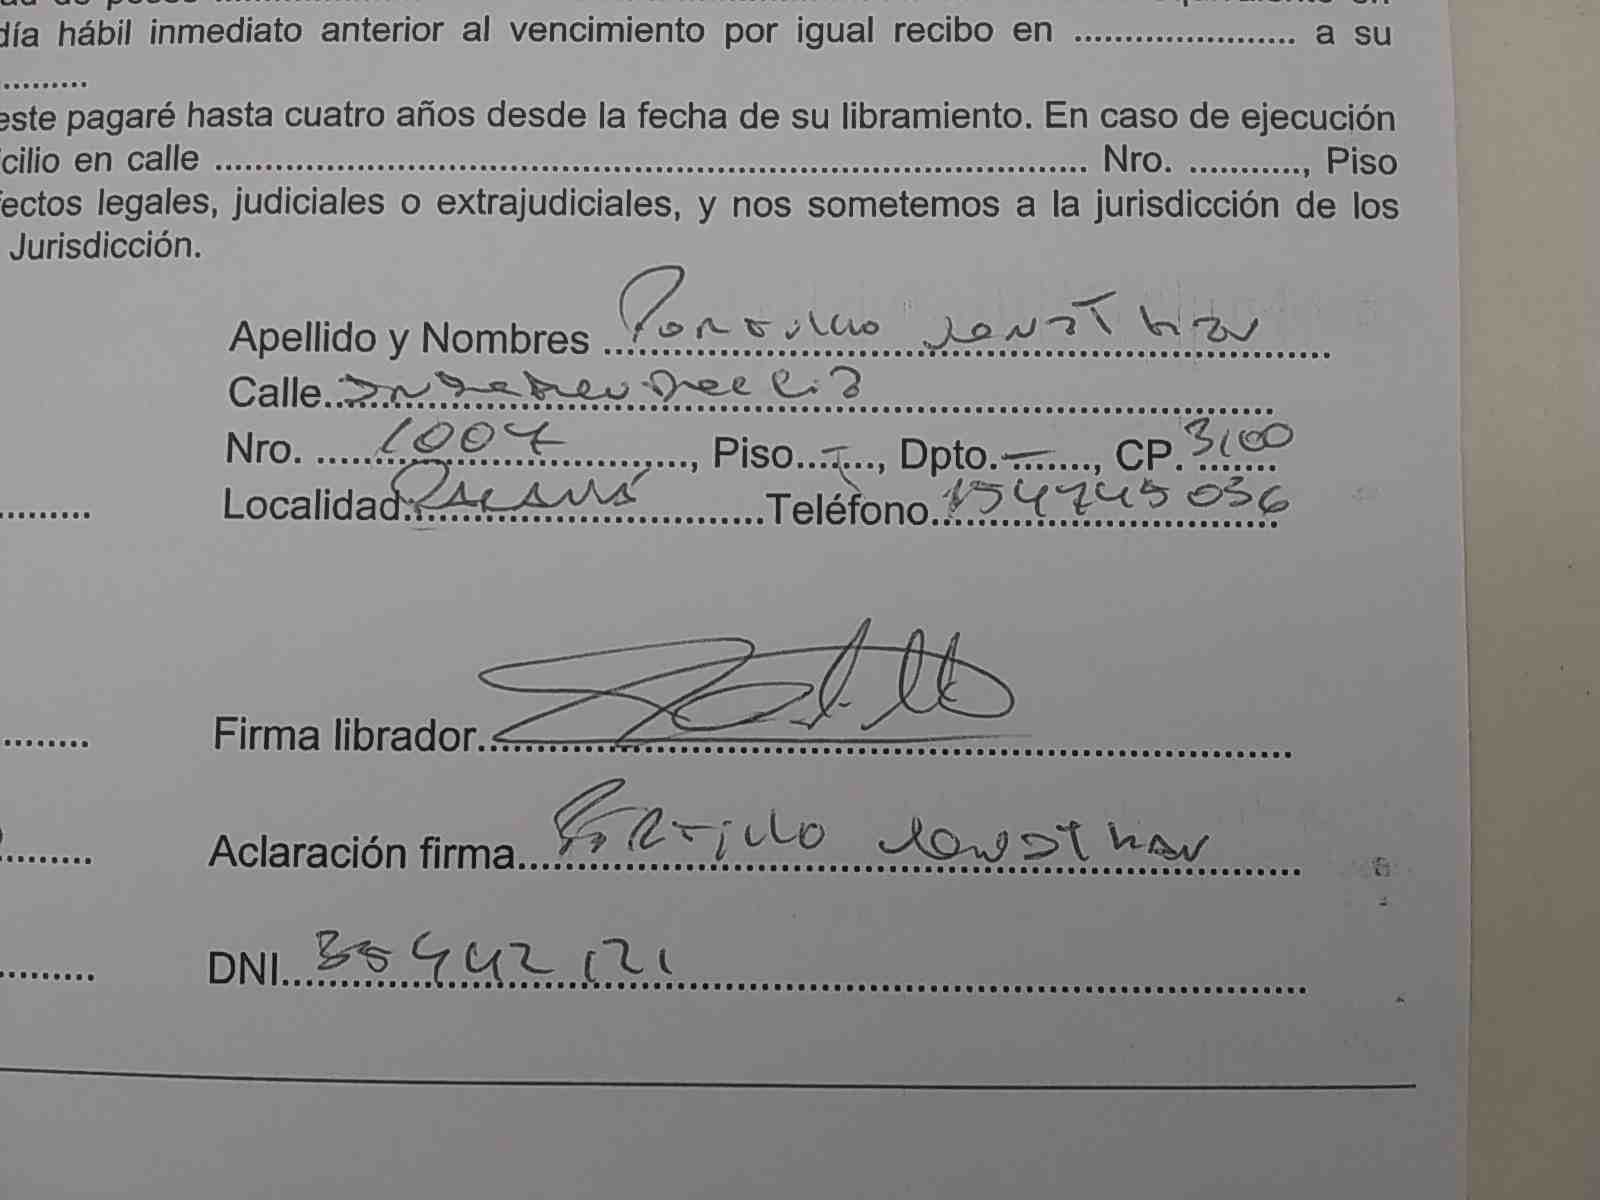 día hábil inmediato anterior al vencimiento por igual recibo en ...................... a su
.........
este pagaré hasta cuatro años desde la fecha de su libramiento. En caso de ejecución
cilio en calle ...................................................................................... Nro. ..........., Piso
ectos legales, judiciales o extrajudiciales, y nos sometemos a la jurisdicción de los
Jurisdicción.
Apellido y Nombres Portillo Jonathan
Calle Independencia
Nro. 1007, Piso -, Dpto. -, CP. 3100
Localidad Paraná Teléfono 154745036
Firma librador
Aclaración firma Portillo Jonathan
DNI 35442121